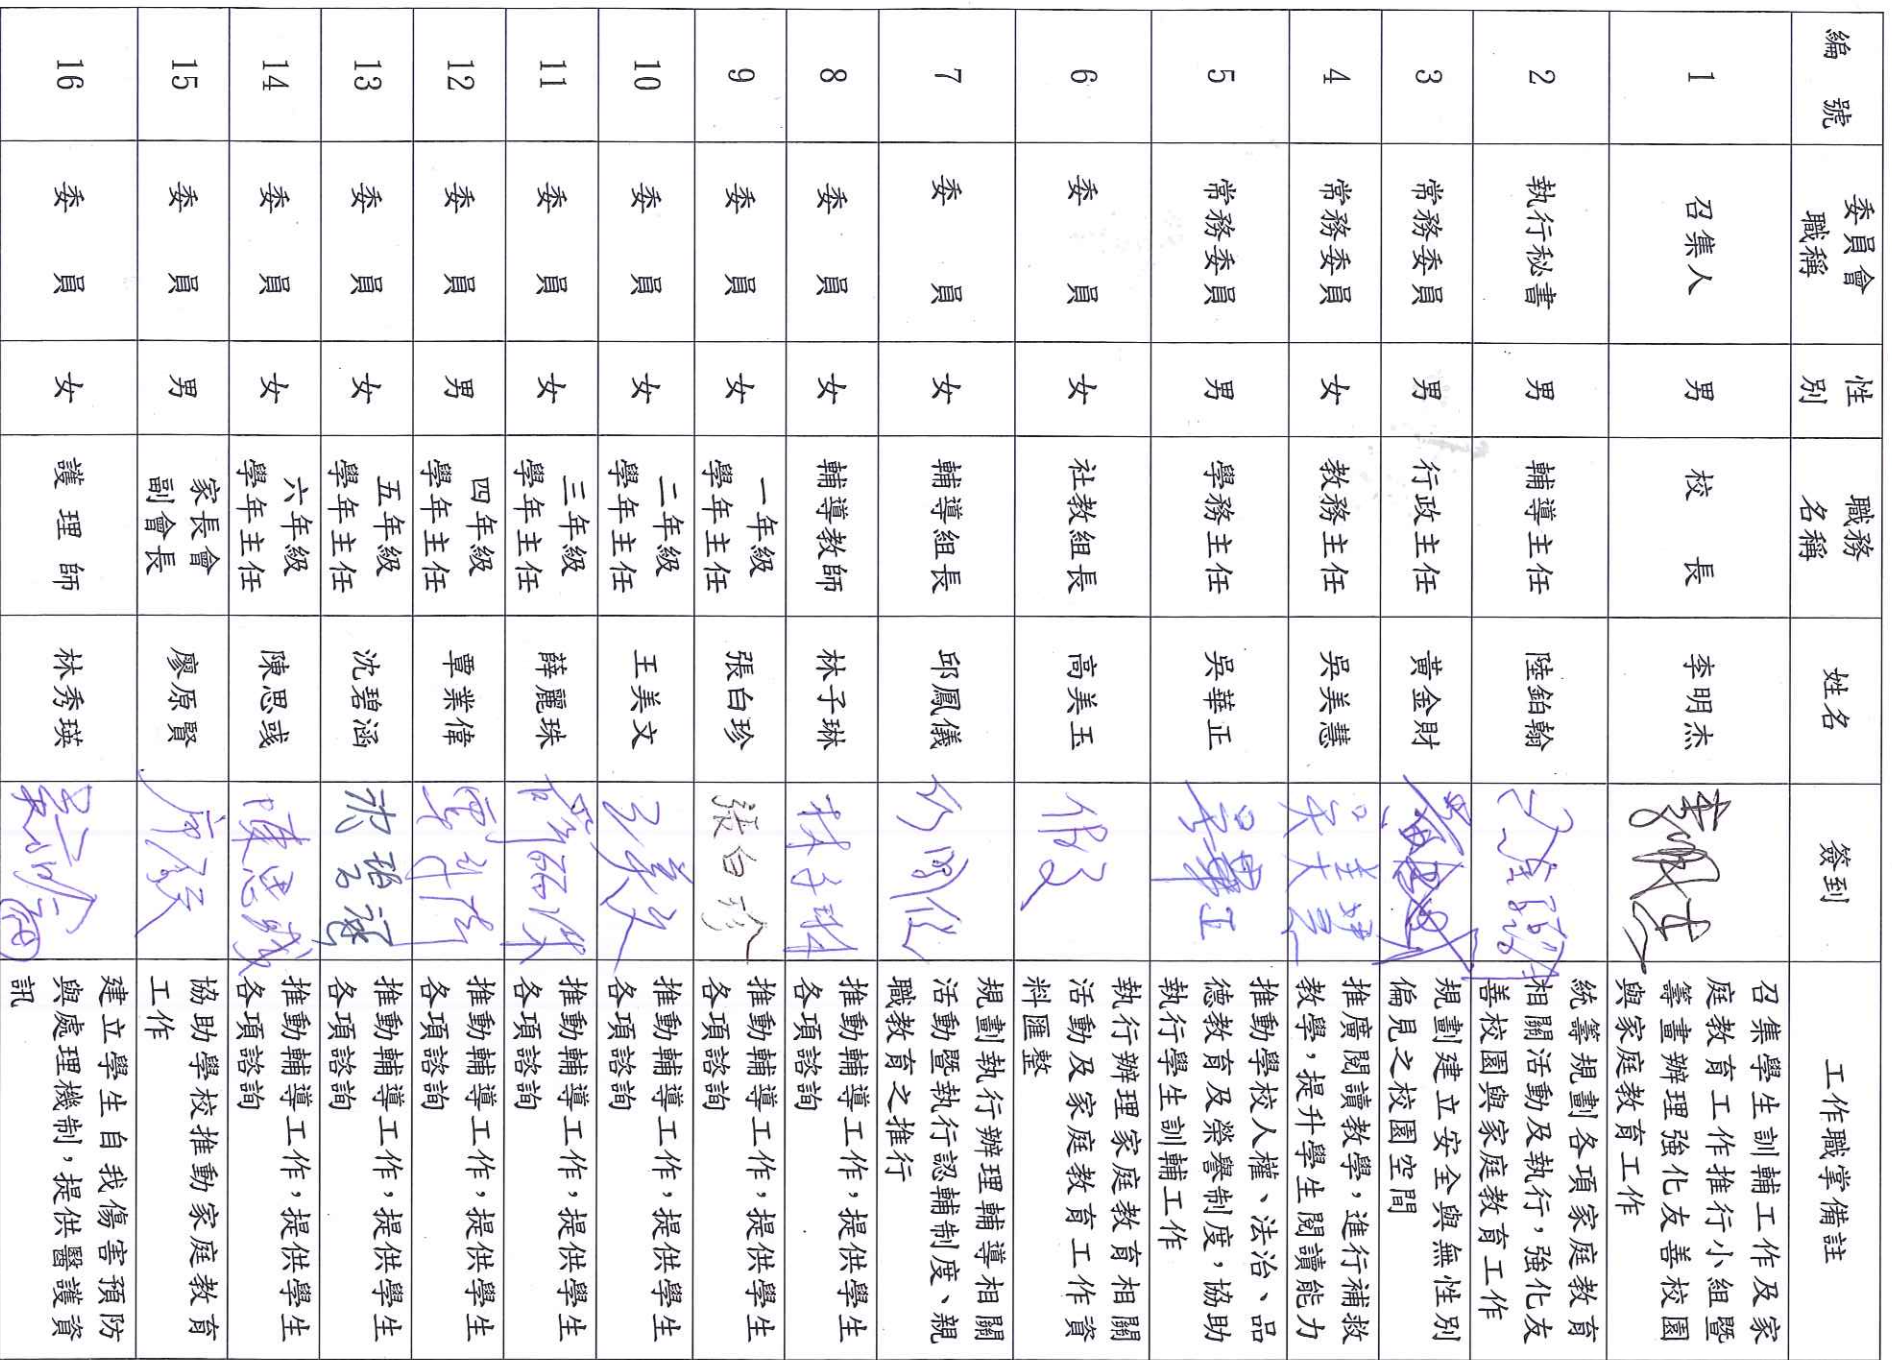 編號 委員會職稱 性別 職務名稱 姓名 簽到 工作職掌備註
1 召集人 男 校長 李明杰
召集學生訓輔工作及家
庭教育工作推行小組暨
籌畫辦理強化友善校園
與家庭教育工作
2 執行秘書 男 輔導主任 陸鉑翰
統籌規劃各項家庭教育
相關活動及執行,強化友
善校園與家庭教育工作
3 常務委員 男 行政主任 黃金財
規劃建立安全與無性別
偏見之校園空間
4 常務委員 女 教務主任 吳美慧
推廣閱讀教學,進行補救
教學,提升學生閱讀能力
5 常務委員 男 學務主任 吳華正 吳華正
推動學校人權、法治、品
德教育及榮譽制度,協助
執行學生訓輔工作
6 委員 女 社教組長 高美玉
執行辦理家庭教育相關
活動及家庭教育工作資
料匯整
7 委員 女 輔導組長 邱鳳儀
規劃執行辦理輔導相關
活動暨執行認輔制度、親
職教育之推行
8 委員 女 輔導教師 林子琳 林子琳
推動輔導工作,提供學生
各項諮詢
9 委員 女 一年級學年主任 張白珍 張白珍
推動輔導工作,提供學生
各項諮詢
10 委員 女 二年級學年主任 王美文 王美文
推動輔導工作,提供學生
各項諮詢
11 委員 女 三年級學年主任 薛麗珠
推動輔導工作,提供學生
各項諮詢
12 委員 男 四年級學年主任 覃業偉
推動輔導工作,提供學生
各項諮詢
13 委員 女 五年級學年主任 沈碧涵 沈碧涵
推動輔導工作,提供學生
各項諮詢
14 委員 女 六年級學年主任 陳思彧 陳思彧
推動輔導工作,提供學生
各項諮詢
15 委員 男 家長會副會長 廖原賢
協助學校推動家庭教育
工作
16 委員 女 護理師 林秀瑛
建立學生自我傷害預防
與處理機制,提供醫護資
訊